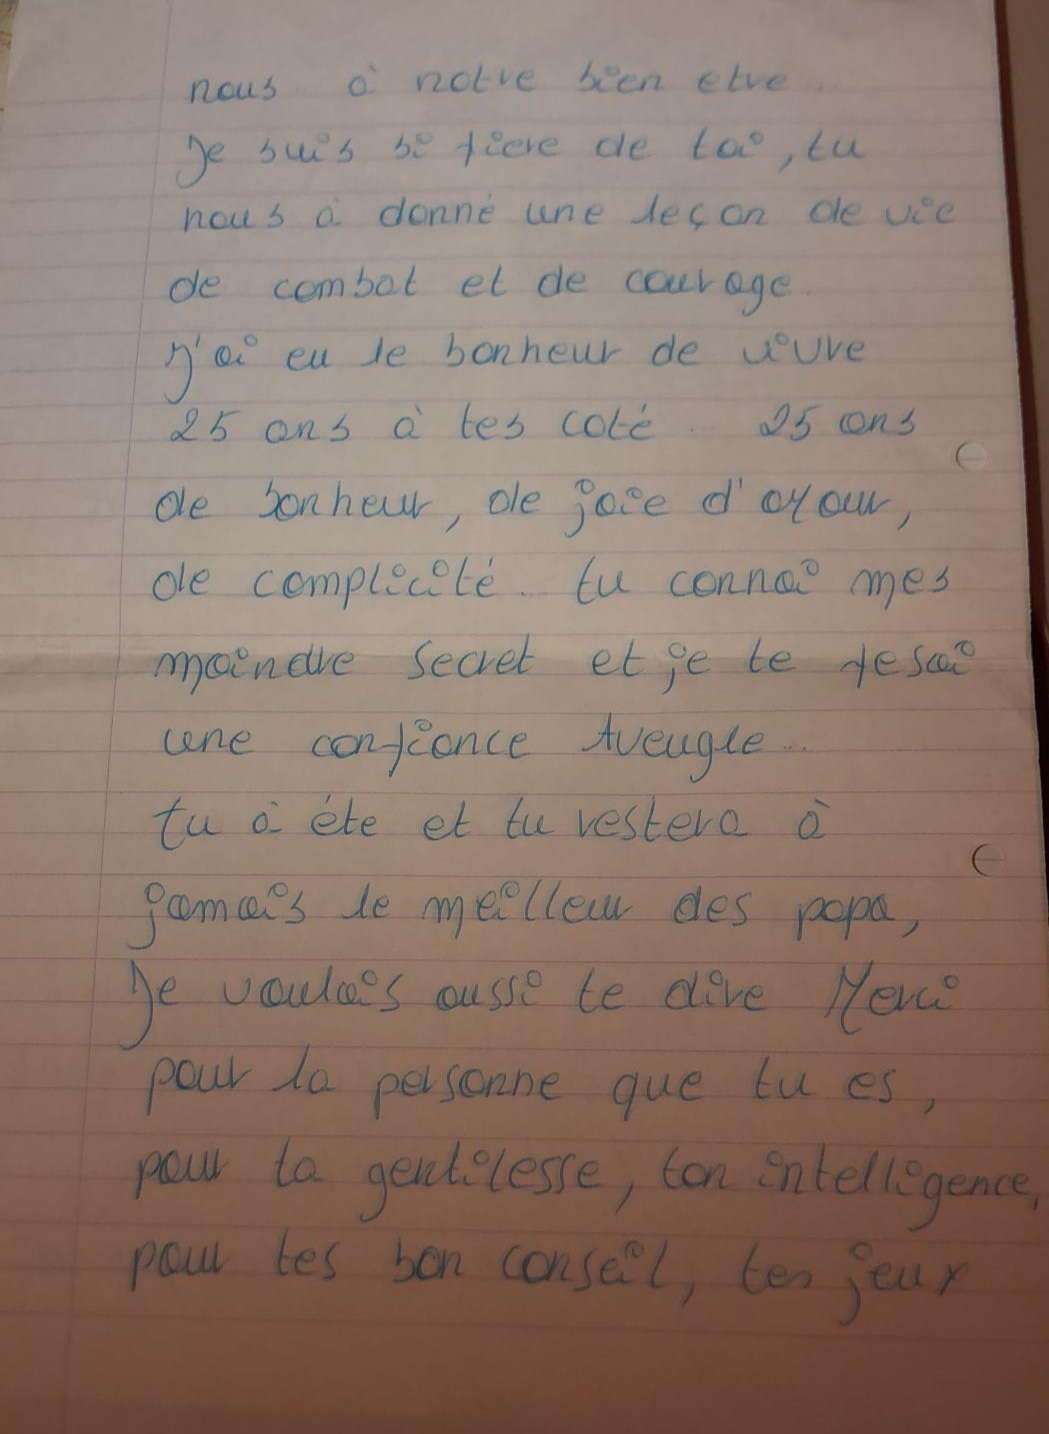 nous à notre bien etre
Je suis si fiere de toi, tu
nous à donné une leçon de vie
de combat et de courage.
J'ai eu le bonheur de vivre
25 ans à tes coté .. 25 ans
de bonheur, de joie d'amour,
de complicité.. tu connai mes
moindre secret et je te fesai
une confiance Aveugle...
tu à éte et tu restera à
jamais le meilleur des papa,
Je voulais aussi te dire Merci
pour la personne que tu es,
pour ta gentilesse, ton intelligence,
pour tes bon conseil, tes jeux